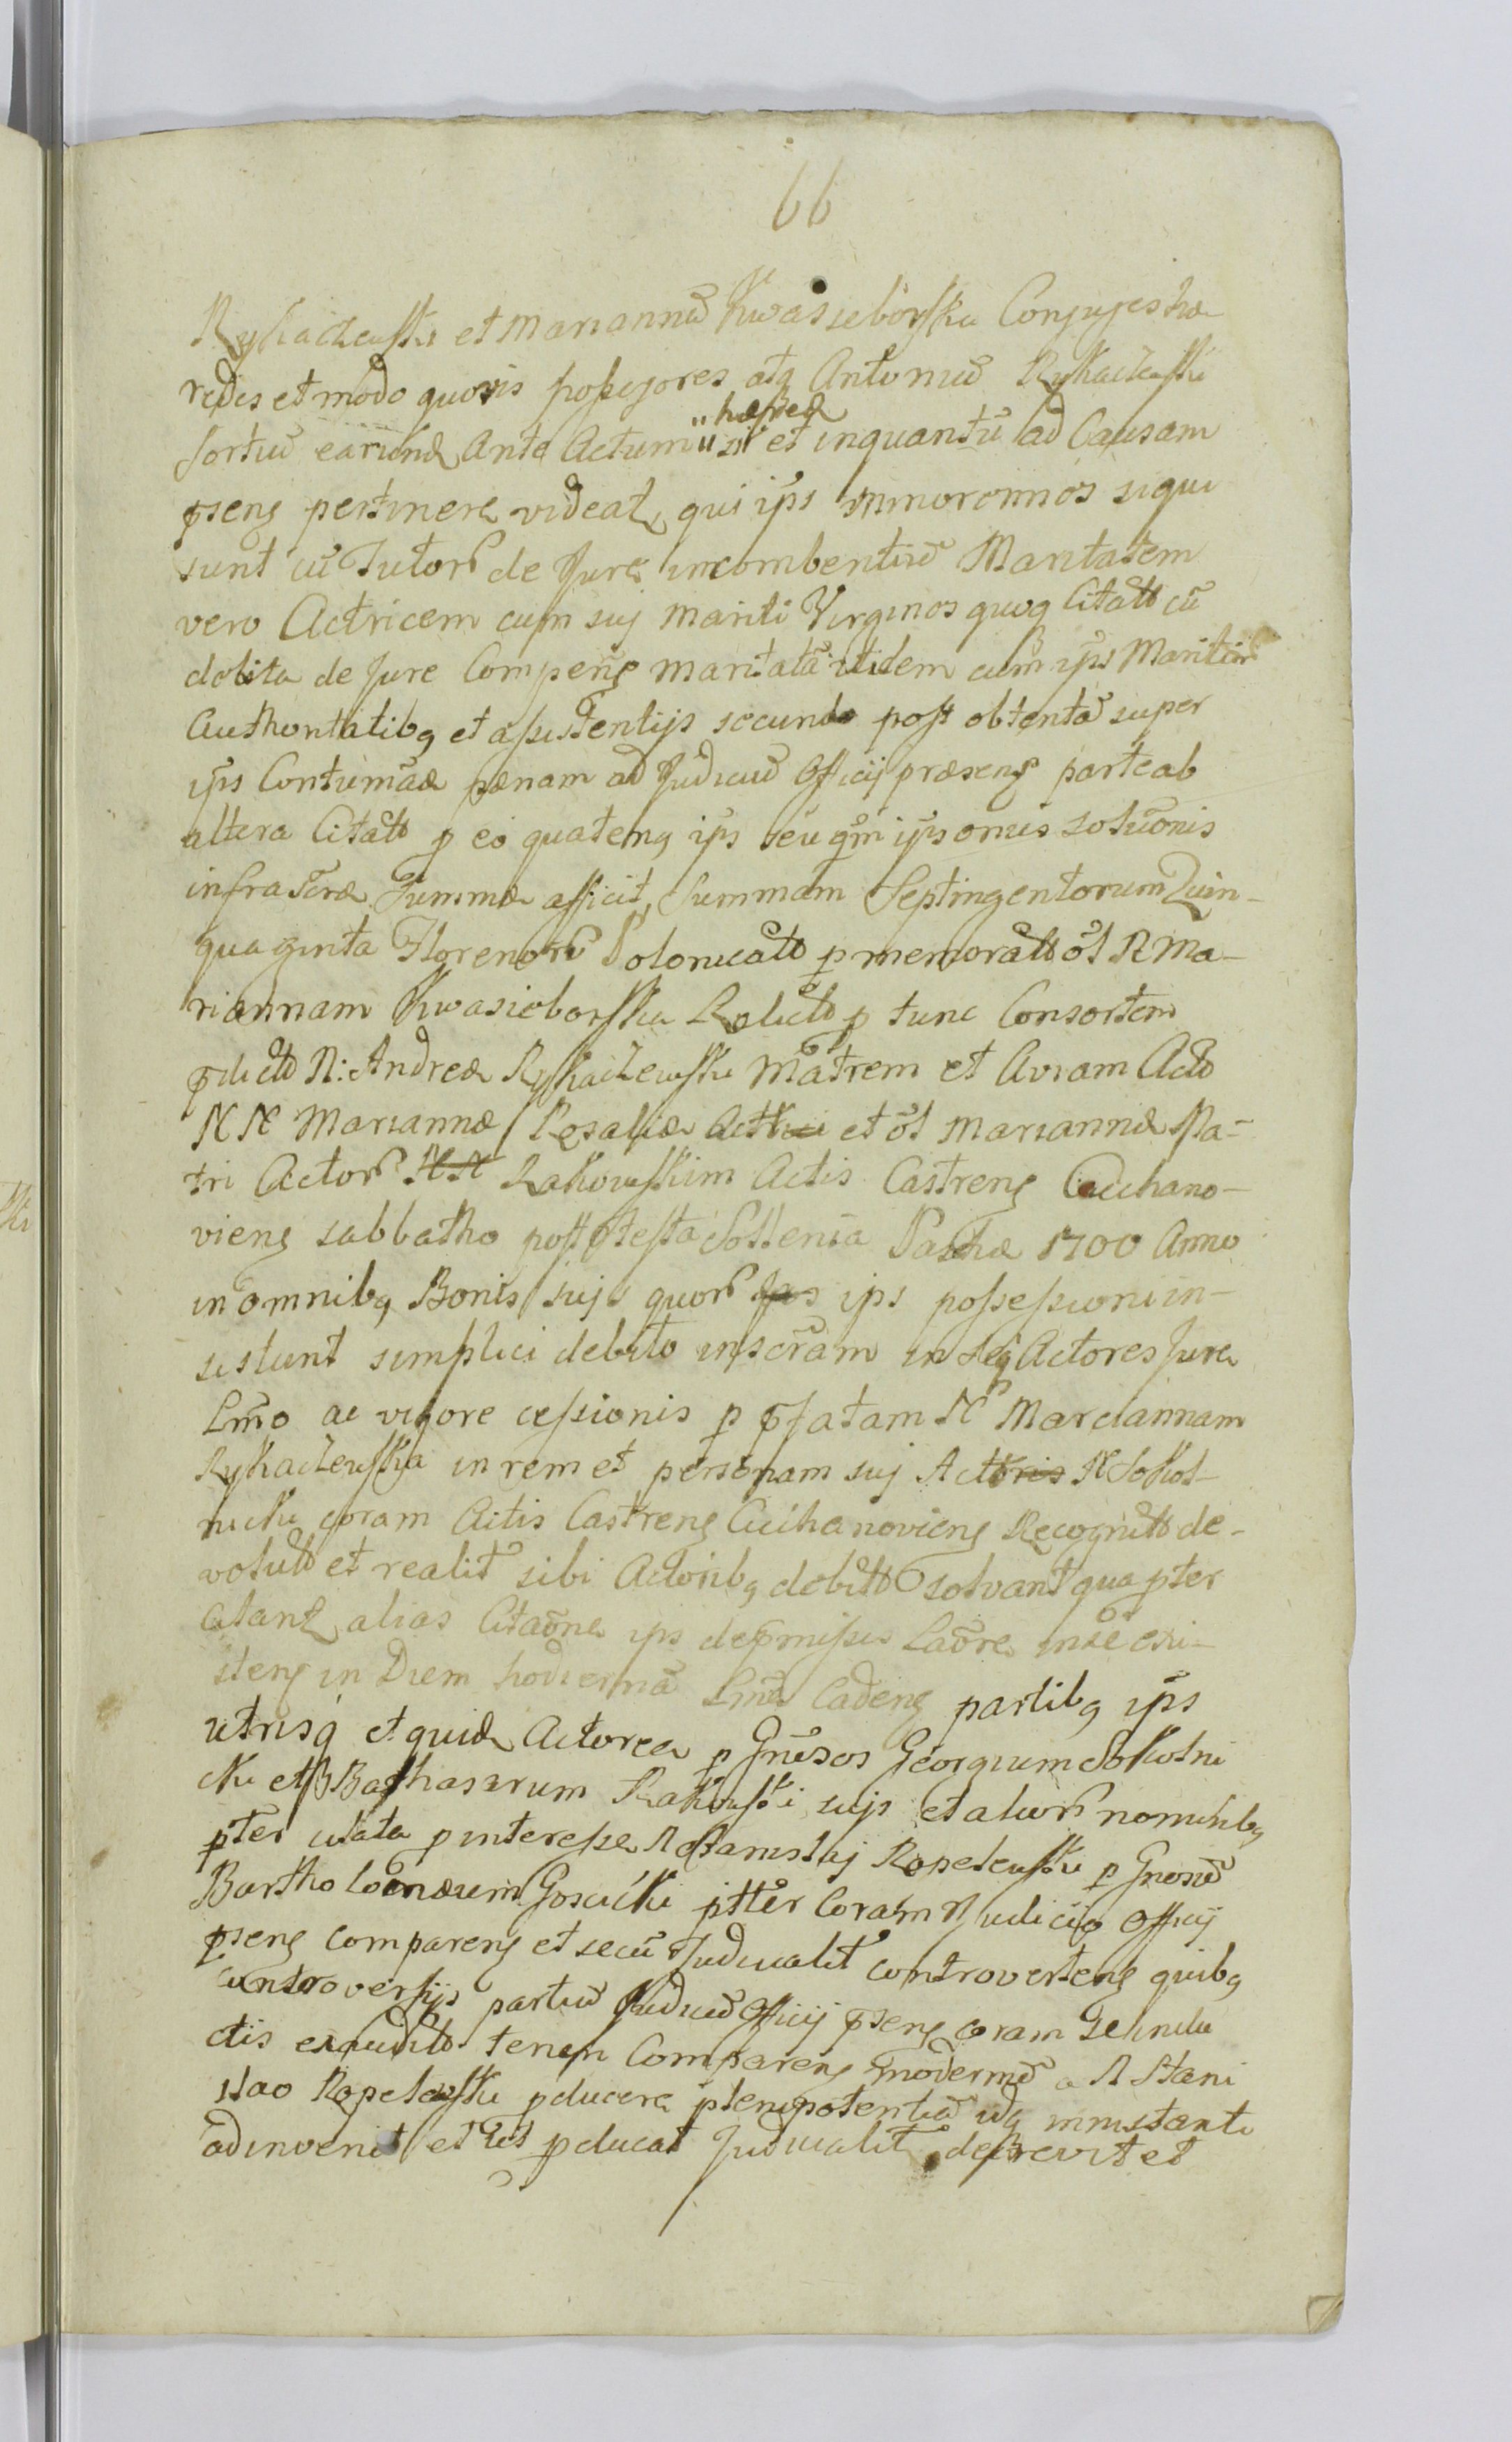 66
Rykaczewski et Mariannā Kwasieborska Conjuges hæ
redes et modo quovis possessores atq Antoniū Rykaczewski
hæred
sortiū earund Ante Actum et inquantū ad Causam
pseng pertinere videat, qui ips minorennos siqui
sunt cū Tutor de Jure incombentiū Maritatem
vero Actricem cum suj Mariti Virginos quoq Citatt cū
debita de Jure Compeng maritatā itidem cum ips Maritior
Authoritatibq et assistentijs secundo post obtentā super
ips Contumaæ pænam ad Judiciū Officij præseng parte ab
altera Citatt p eo quateng ips seu qm ips onus solūonis
infra Scræ Summæ afficit, Summam Septingentorum Quin-
quaginta Florenor Polonicatt p memoratt ol N Ma-
riannam Kwasieborska Relictt p tunc Consortem
pdictt N: Andreæ Rykaczewski Matrem et Aviam Actt
N N Mariannæ Rosaliæ et ol Mariannæ Ma-
tri Actor Rakowskim Actis Castreng Ciecha no-
vieng sabbatho post Festa Sollenia Paschæ 1700 Anno
in omnibq Bonis sujs quor ips possessioni in-
sistunt simplici debito inscram in seq Actores Jure
Lmo ac vigore cessionis p pfatam N Mariannam
Rykaczewska in rem et personam suj N Sokol-
nicki coram Actis Castreng Ciechanovieng Recognitt de-
volutt et realit sibi Actoribq debitt solvant qua pter
citant alias Citaōne ips depmissis Laōre inse exi-
steng in Diem hodiernā Lmē Cadeng partibq ips
utrisq et quid Actorea p Gnēsos Georgium Sokolni
cki et Balthasarum Rakowski sujs et alior nominibq
pter citata p interesse N Stanislaj Ropelewski p Gnosū
Bartholomæum Goscicki pttēr Coram Judicio Officij
pseng compareng et secū Judicialit controverteng quibq
controversijs partiū Judiciū Officij pseng coram se
ctis exauditt teneri Compareng modernū a N Stani
slao Ropelewski pducere plenipotentiā idq in instanti
adinvenit et ut pducat Judicialit decrevit et